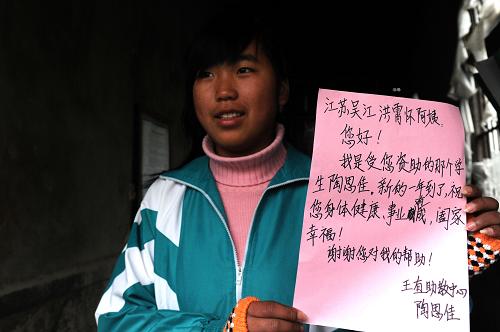 江苏吴江 洪雷怀阿姨:
您好!
我是受您资助的那个学
生陶思佳。新的一年到了,祝
您身体健康、事业有成,阖家
幸福!
谢谢您对我的帮助!
王有助教中心
陶思佳